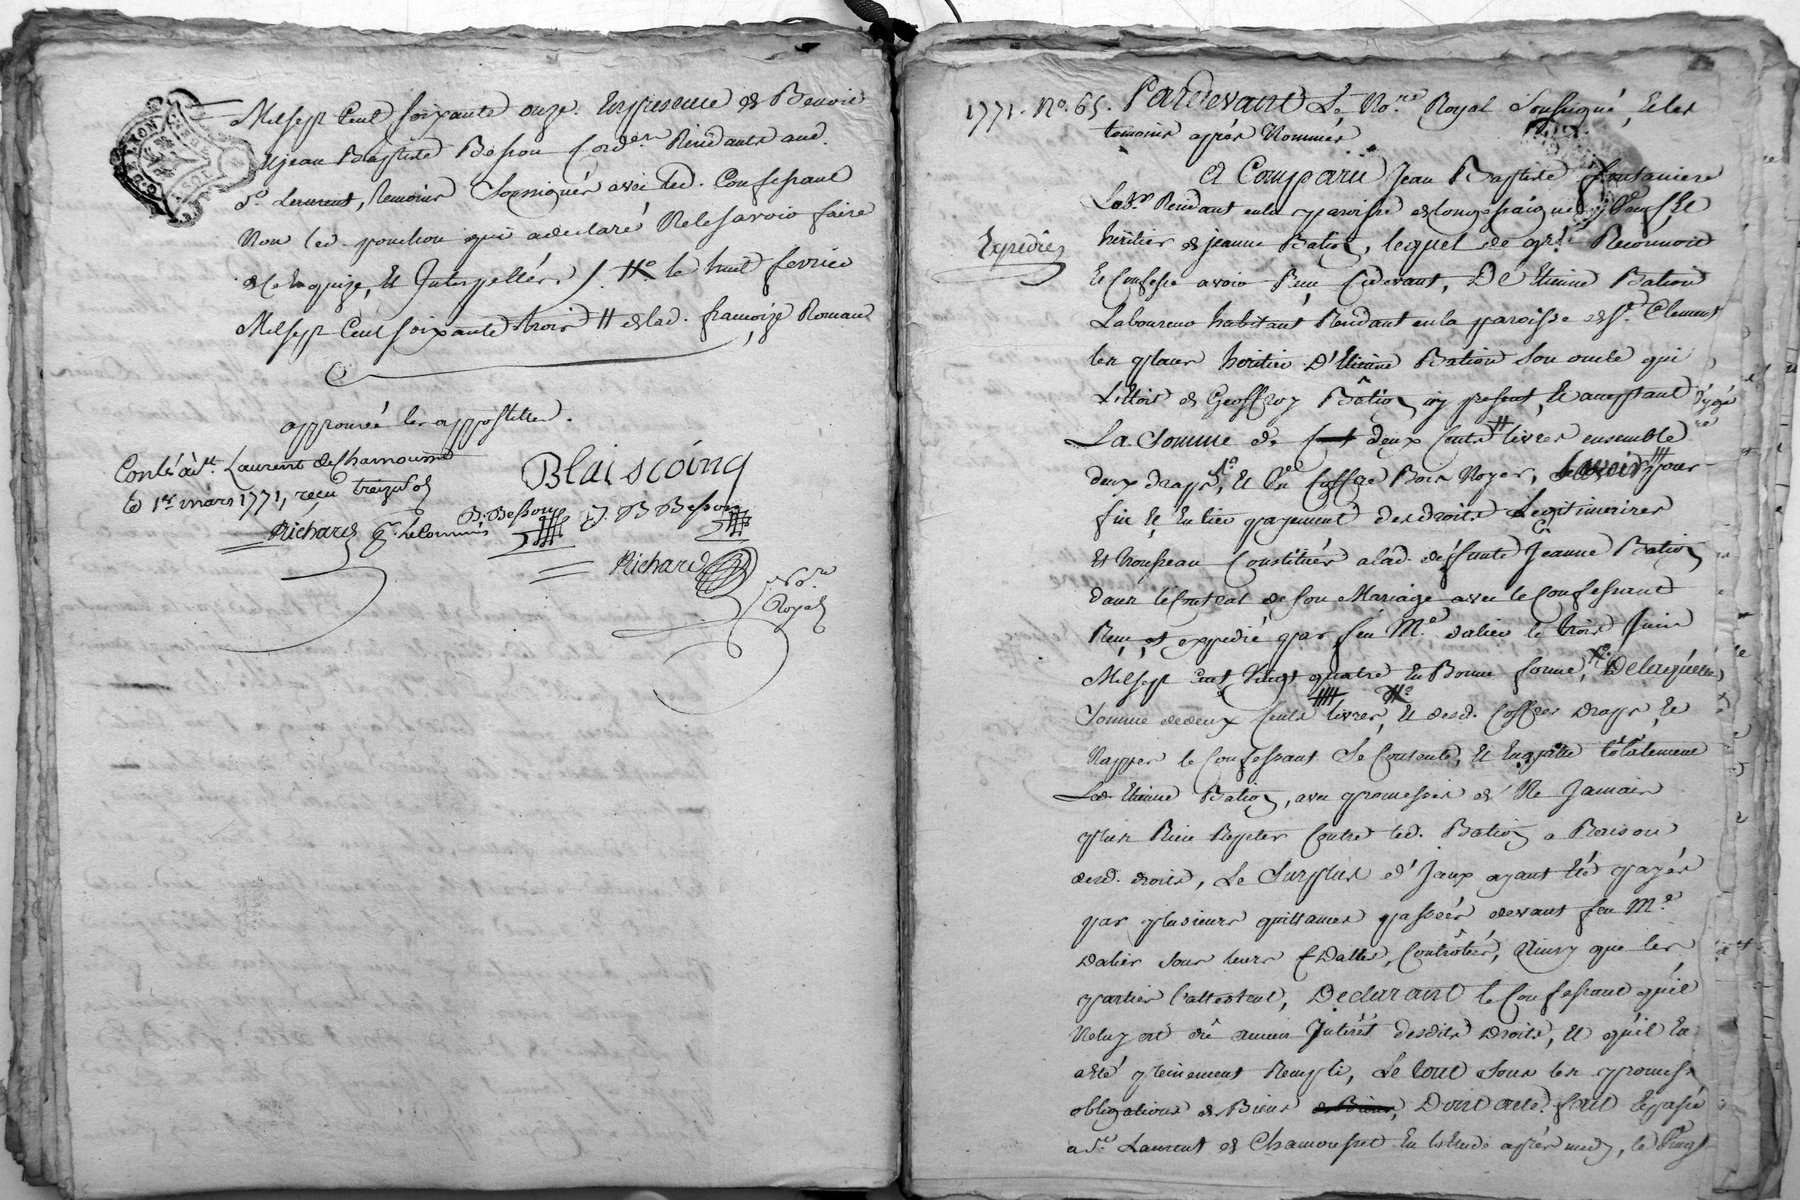 Mil sept Cent soixante onze. En presence de Benoit
& jean Baptiste Besson Cord.er Residants aud.
S.t Laurent, temoins Soussignés avec led. Confessant
Non led. ponchon qui a declaré Ne le savoir faire
de ce enquize, et Interpellés /. # le huit fevrier
Mil sept Cent soixante trois # de lad. francoize Romand
approuvé les appostilles.
Conlé à St. Laurent de Chamousset
le 1er. mars 1771, reçu treize sols
Richard
B. Besson
J. B Besson
Blaiscoing
Richard
No.re
Royal
1771. No. 65. Pardevant Le No.re Royal Soussigné, et les
temoins après Nommés
Et Comparu Jean Baptiste fontaniere
Lab.r Residant en la paroisse de longessaigne Veuf et
heritier de jeanne Bation, lequel de gré Reconnoit
Expediez
et Confesse avoir Reçu Cidevant, De Etienne Bation
Laboureur habitant Residant en la paroisse de S.t Clement
les places heritier D'Etienne Bation Son oncle qui
L'Etoit de Geoffroy Bation icy present, et acceptant
La Somme de Cent deux Cents livres ensemble
deux draps, et Un Coffre Bois Noyer, Savoir pour
fin et entier payement des droits Legitimaires
et trousseau Constitués a lad. défunte Jeanne Bation
dans le Contrat de Son Mariage avec le Confessant
Reçu et expedié par feu M.e dalier le trois Juin
Mil sept Cent Vingt quatre en Bonne forme, De laquelle
Somme de deux Cents livres, et desd. Coffres Draps, et
Nappes le Confessant Se Contente, et En quitte totalement
Led. Etienne Bation, avec promesses de Ne Jamais
plus Rien Repeter Contre led. Bation a Raison
desd. droits, Le Surplus d'Iceux ayant été payés
par plusieurs quittances passées devant feu M.e
dalier sous leurs Dattes, Contrôlées, Ainsy que les
parties l'attestent, Declarant le Confessant qu'il
Ne luy est dû aucun Intérêt desdits Droits, et qu'il En
a été pleinement Rempli, Le tout Sous les promess
obligations de Biens de Biens, Dont acte. fait et passé
a S.t Laurent de Chamousset En L'etude après midy, le Vingt